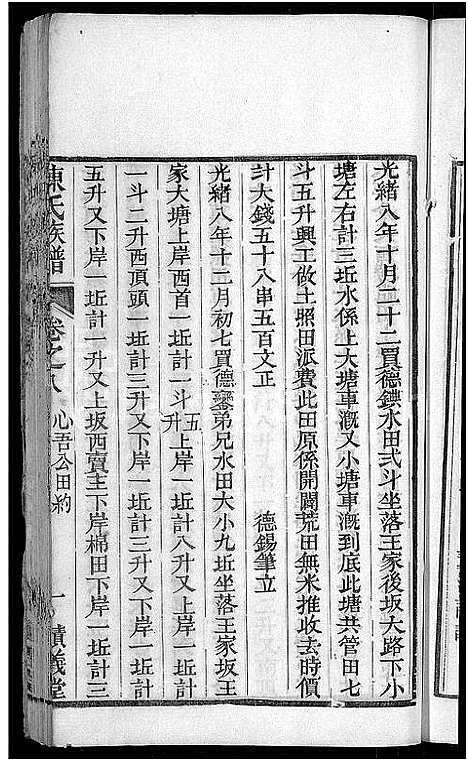 光緒八年十月二十二買德鏷水田弍斗坐落王家後坂大路下小
塘左右計三坵水係上大塘車溉又小塘車溉到底此塘共管田七
斗五升興工做土照田派費此田原係開闢荒田無米推收去時價
計大錢五十八串五百文正　德錫筆立
光緒八年十二月初七買德鑾弟兄水田大小九坵坐落王家坂王
家大塘上岸西首一坵計一斗五升又上岸一坵計八升又上岸一坵計
一斗二升西頂頭一坵計三升又下岸一坵計三升又下岸一坵計
五升又下岸一坵計一升又上坂西賣主下岸棉田下岸一坵計三
陳氏族譜　卷之八　心吾公田約　一　積義堂